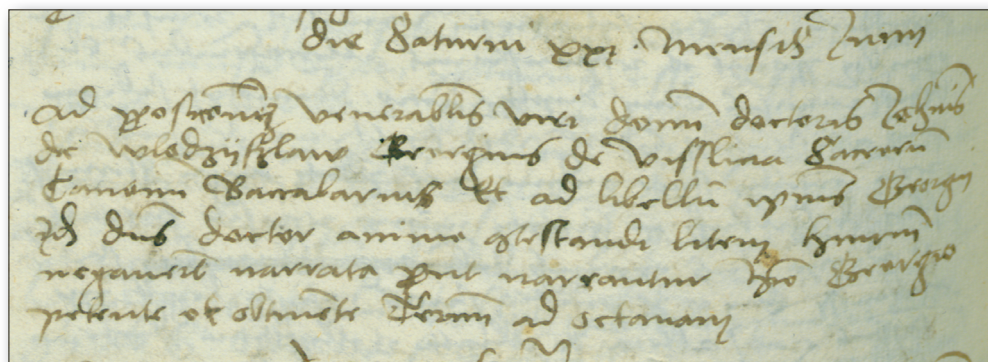 die Saturni xxi mensis Junii
ad positionem venerabilis viri domini doctoris Johannis
de Wlodzyslaw Georgius de Visslicia Sacrorum
Canonum Baccalarius Et ad libellum ipsius Georgii
Idem dominus doctor animo contestandi litem
negavit narrata prout narrantur Georgio
petente et obtinente Terminum ad octavam